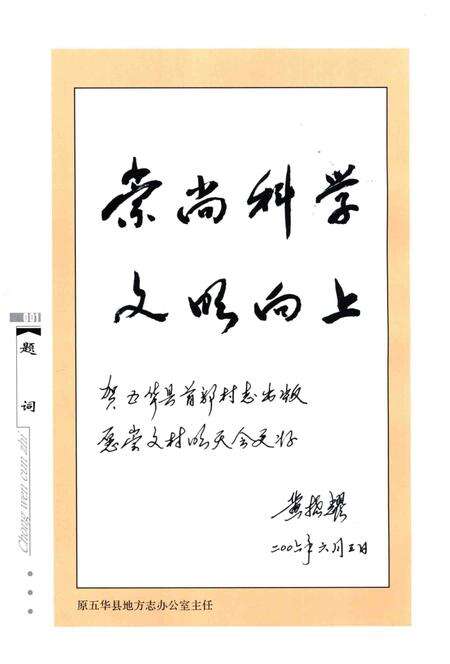 崇尚科学
文明向上
贺五华县首部村志出版
愿崇文村明天会更好
黄振耀
二〇〇六年六月三日
原五华县地方志办公室主任
001
题词
Chong wen cun zhi